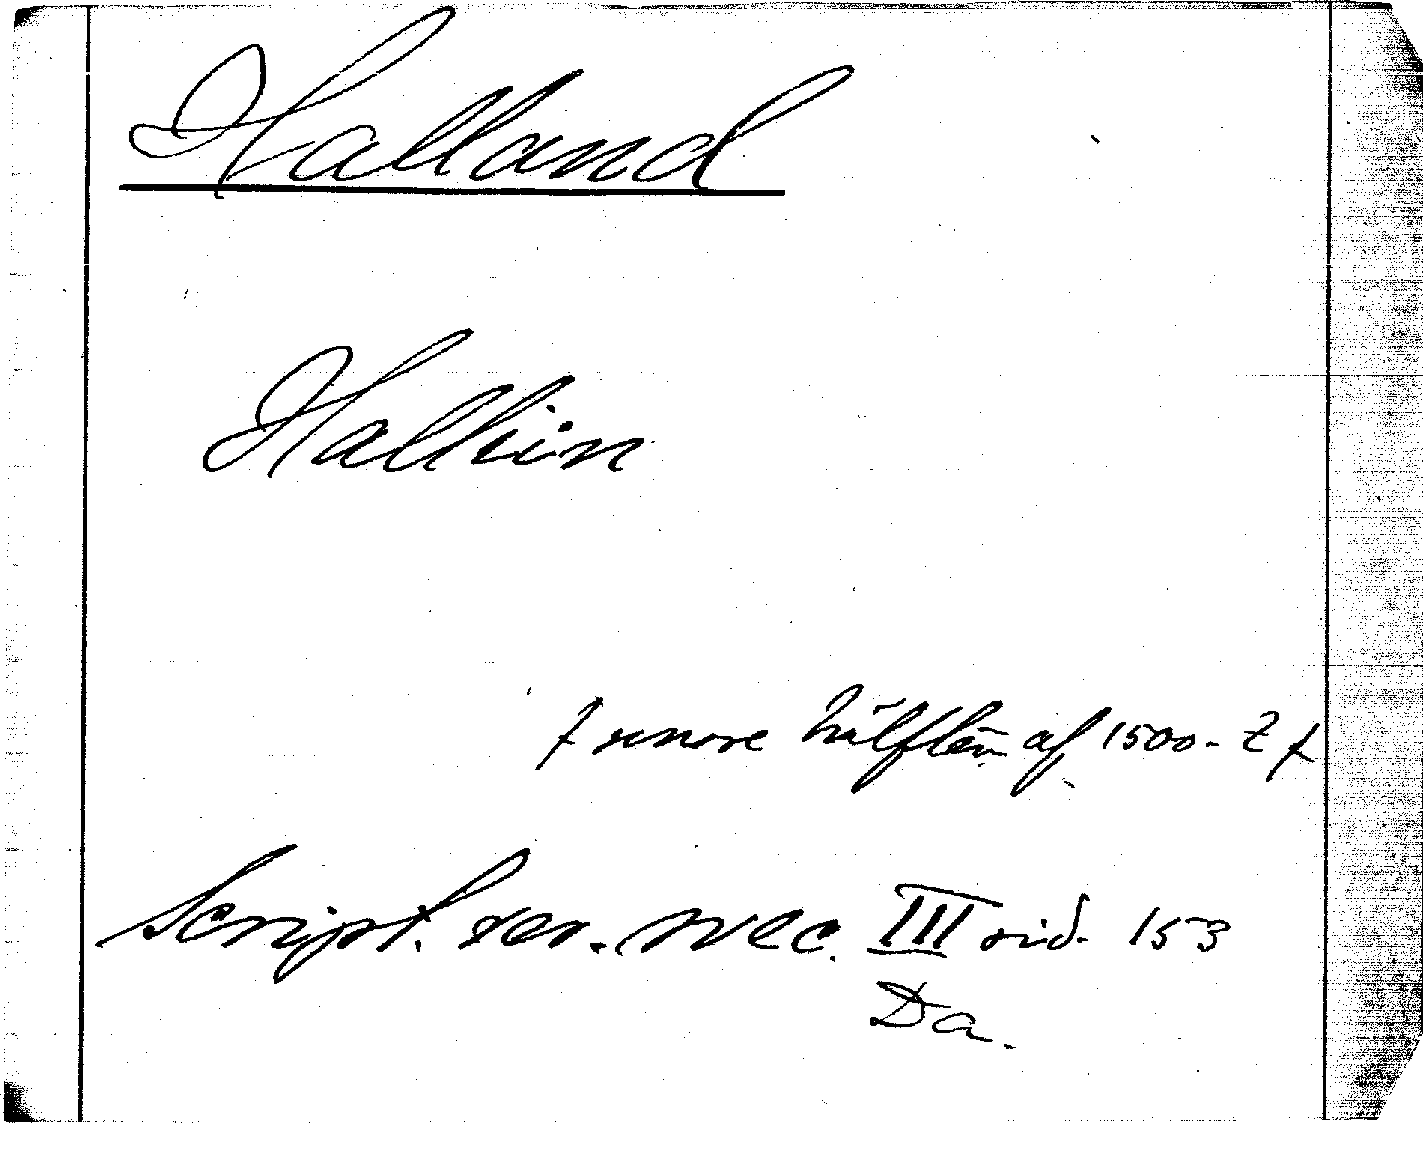 Halland
Hallin
senare hälften af 1500-t
Script. rer. svec. III sid. 153
Da.